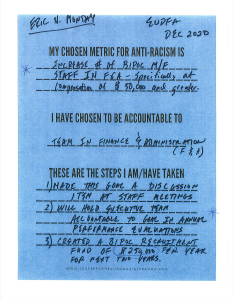 ERIC N. MONDAY
EVPFA
DEC 2020
MY CHOSEN METRIC FOR ANTI-RACISM IS
INCREASE # OF BIPOC M/F
STAFF IN F&A - Specifically at
compensation of $50,000 and greater.
I HAVE CHOSEN TO BE ACCOUNTABLE TO
TEAM IN FINANCE & ADMINISTRATION
(F&A)
THESE ARE THE STEPS I AM/HAVE TAKEN
1) MADE THIS GOAL A DISCUSSION
ITEM AT STAFF MEETINGS
2) WILL HOLD EXECUTIVE TEAM
ACCOUNTABLE TO GOAL IN ANNUAL
PERFORMANCE EVALUATIONS
3) CREATED A BIPOC RECRUITMENT
FUND OF $250,000 PER YEAR
FOR NEXT TWO YEARS.